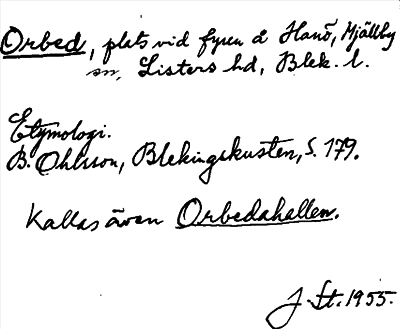 Orbed, plats vid fyren å Hanö, Mjällby
sn, Listers hd, Blek. l.
Etymologi.
B. Ohlsson, Blekingskusten, s. 179.
Kallas även Orbedahallen.
J. St. 1955.